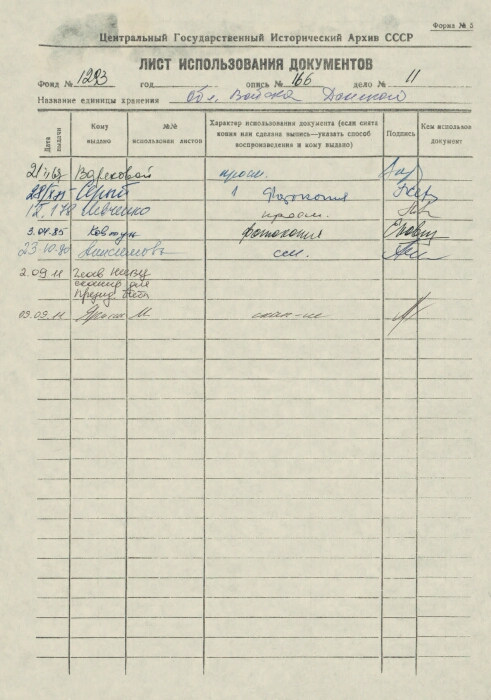 Форма № 5
Центральный Государственный Исторический Архив СССР
ЛИСТ ИСПОЛЬЗОВАНИЯ ДОКУМЕНТОВ
Фонд № 1293 год опись № 166 дело № 11
Название единицы хранения Обл. Войска Донского
Дата выдачи
Кому выдано
№№ использован листов
Характер использования документа (если снята копия или сделана выпись—указать способ воспроизведения и кому выдано)
Подпись
Кем использов документ
просм.
Серый 1 Фотокопия
Левченко просм.
3.04.85 Ковтун фотокопия
23.10.90 Анисимовъ см.
2.09.11
09.09.11 М.